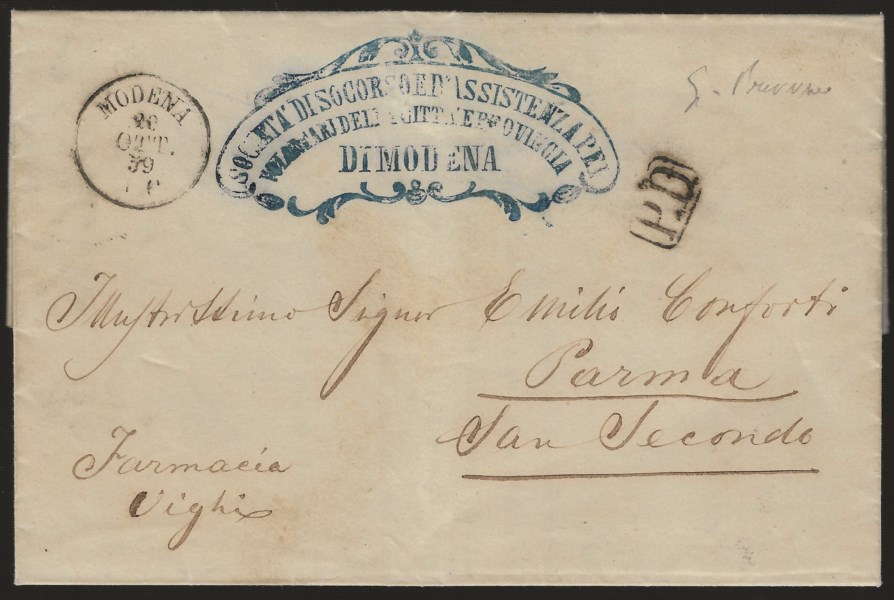 MODENA
OTT.
59
SOCIETÀ DI SOCORSO E D'ASSISTENZA PEI
VOLONTARI DELLA CITTÀ E PROVINCIA
DI MODENA
P.D.
Illustrissimo Signor Emilio Conforti
Parma
San Secondo
Farmacia
Vighi